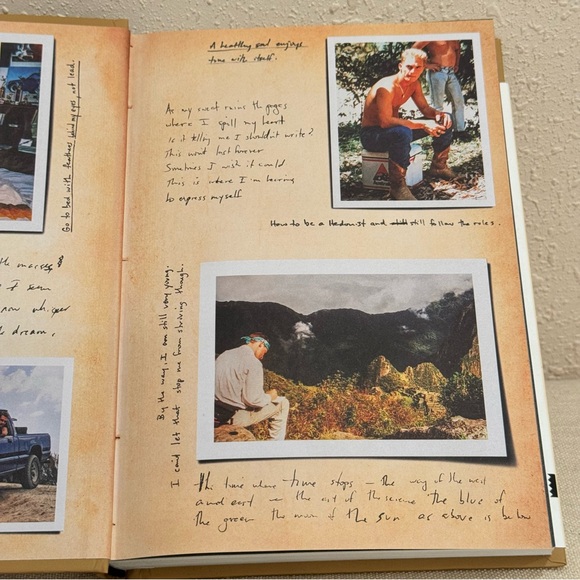 Go to bed with feathers behind my eyes, not lead.
the
I seem
now whisper
dream,
A healthy and
time with itself.
As my sweat ruins the pages
where I spill my heart
Is it telling me I shouldn't write?
This won't last forever
Sometimes I wish it could
This is where I'm learning
to express myself
How to be a Hedonist and still follow the rules.
By the way, I am still very young.
I can't let that stop me from striving though.
the time where time stops – the way of the west
and east – the art of the science the blue of
the green the moon & the sun as above is below